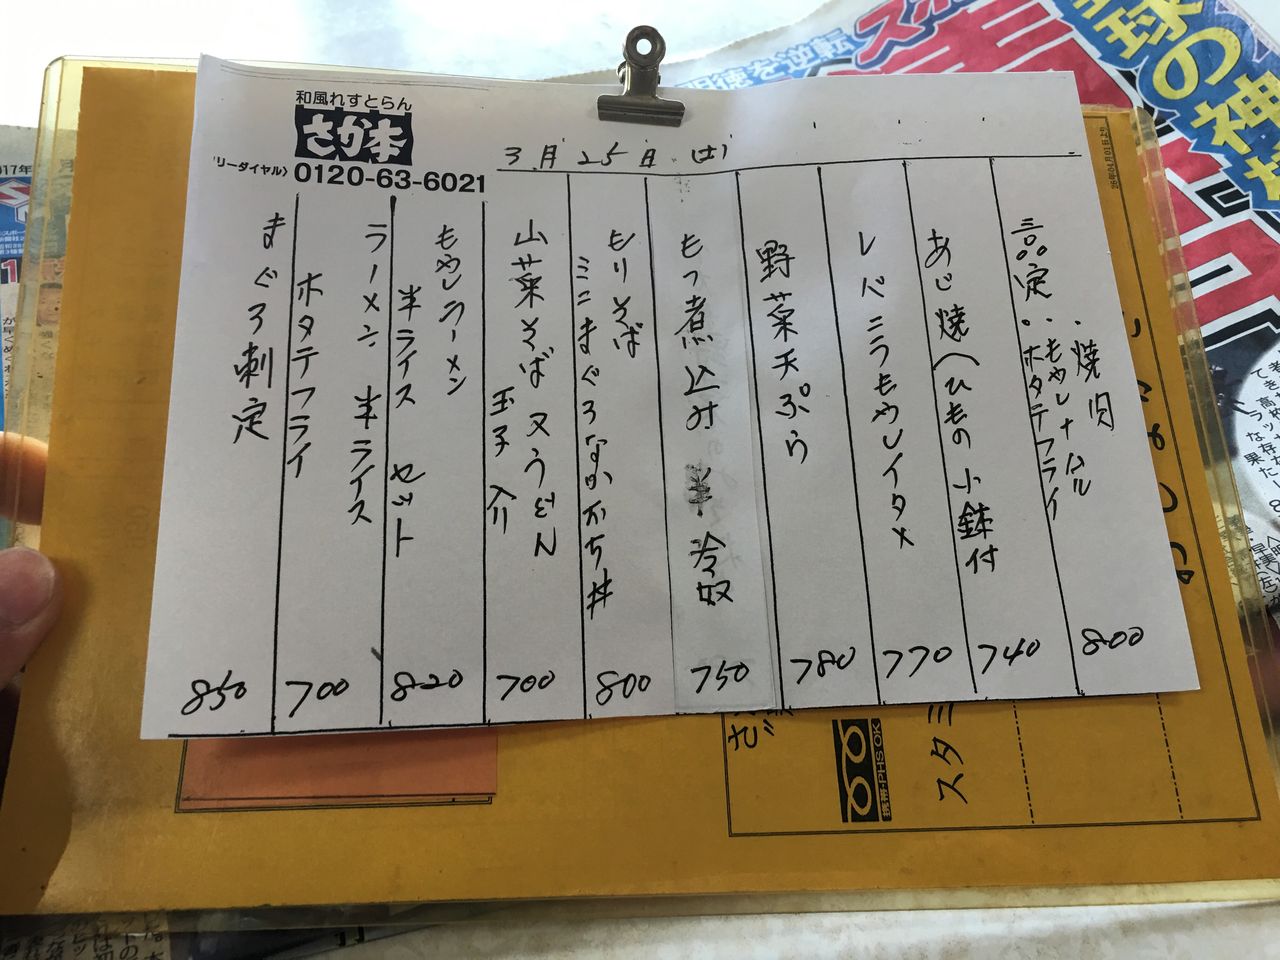 和風れすとらん
さか本
リーダイヤル〉0120-63-6021
3月25日(土)
・焼肉
・もやしナムル
・ホタテフライ
800
あじ焼(ひもの 小鉢付
740
レバニラもやしイタメ
770
野菜天ぷら
780
もつ煮込み 半 冷奴
750
もりそば
ミニまぐろなかおち丼
800
山菜そば又うどん
玉子入り
700
もやしラーメン
半ライス セット
820
ラーメン 半ライス
ホタテフライ
700
まぐろ刺定
850
携帯・PHS OK
スタミ
26年04月01日より
球の神
明徳を逆転